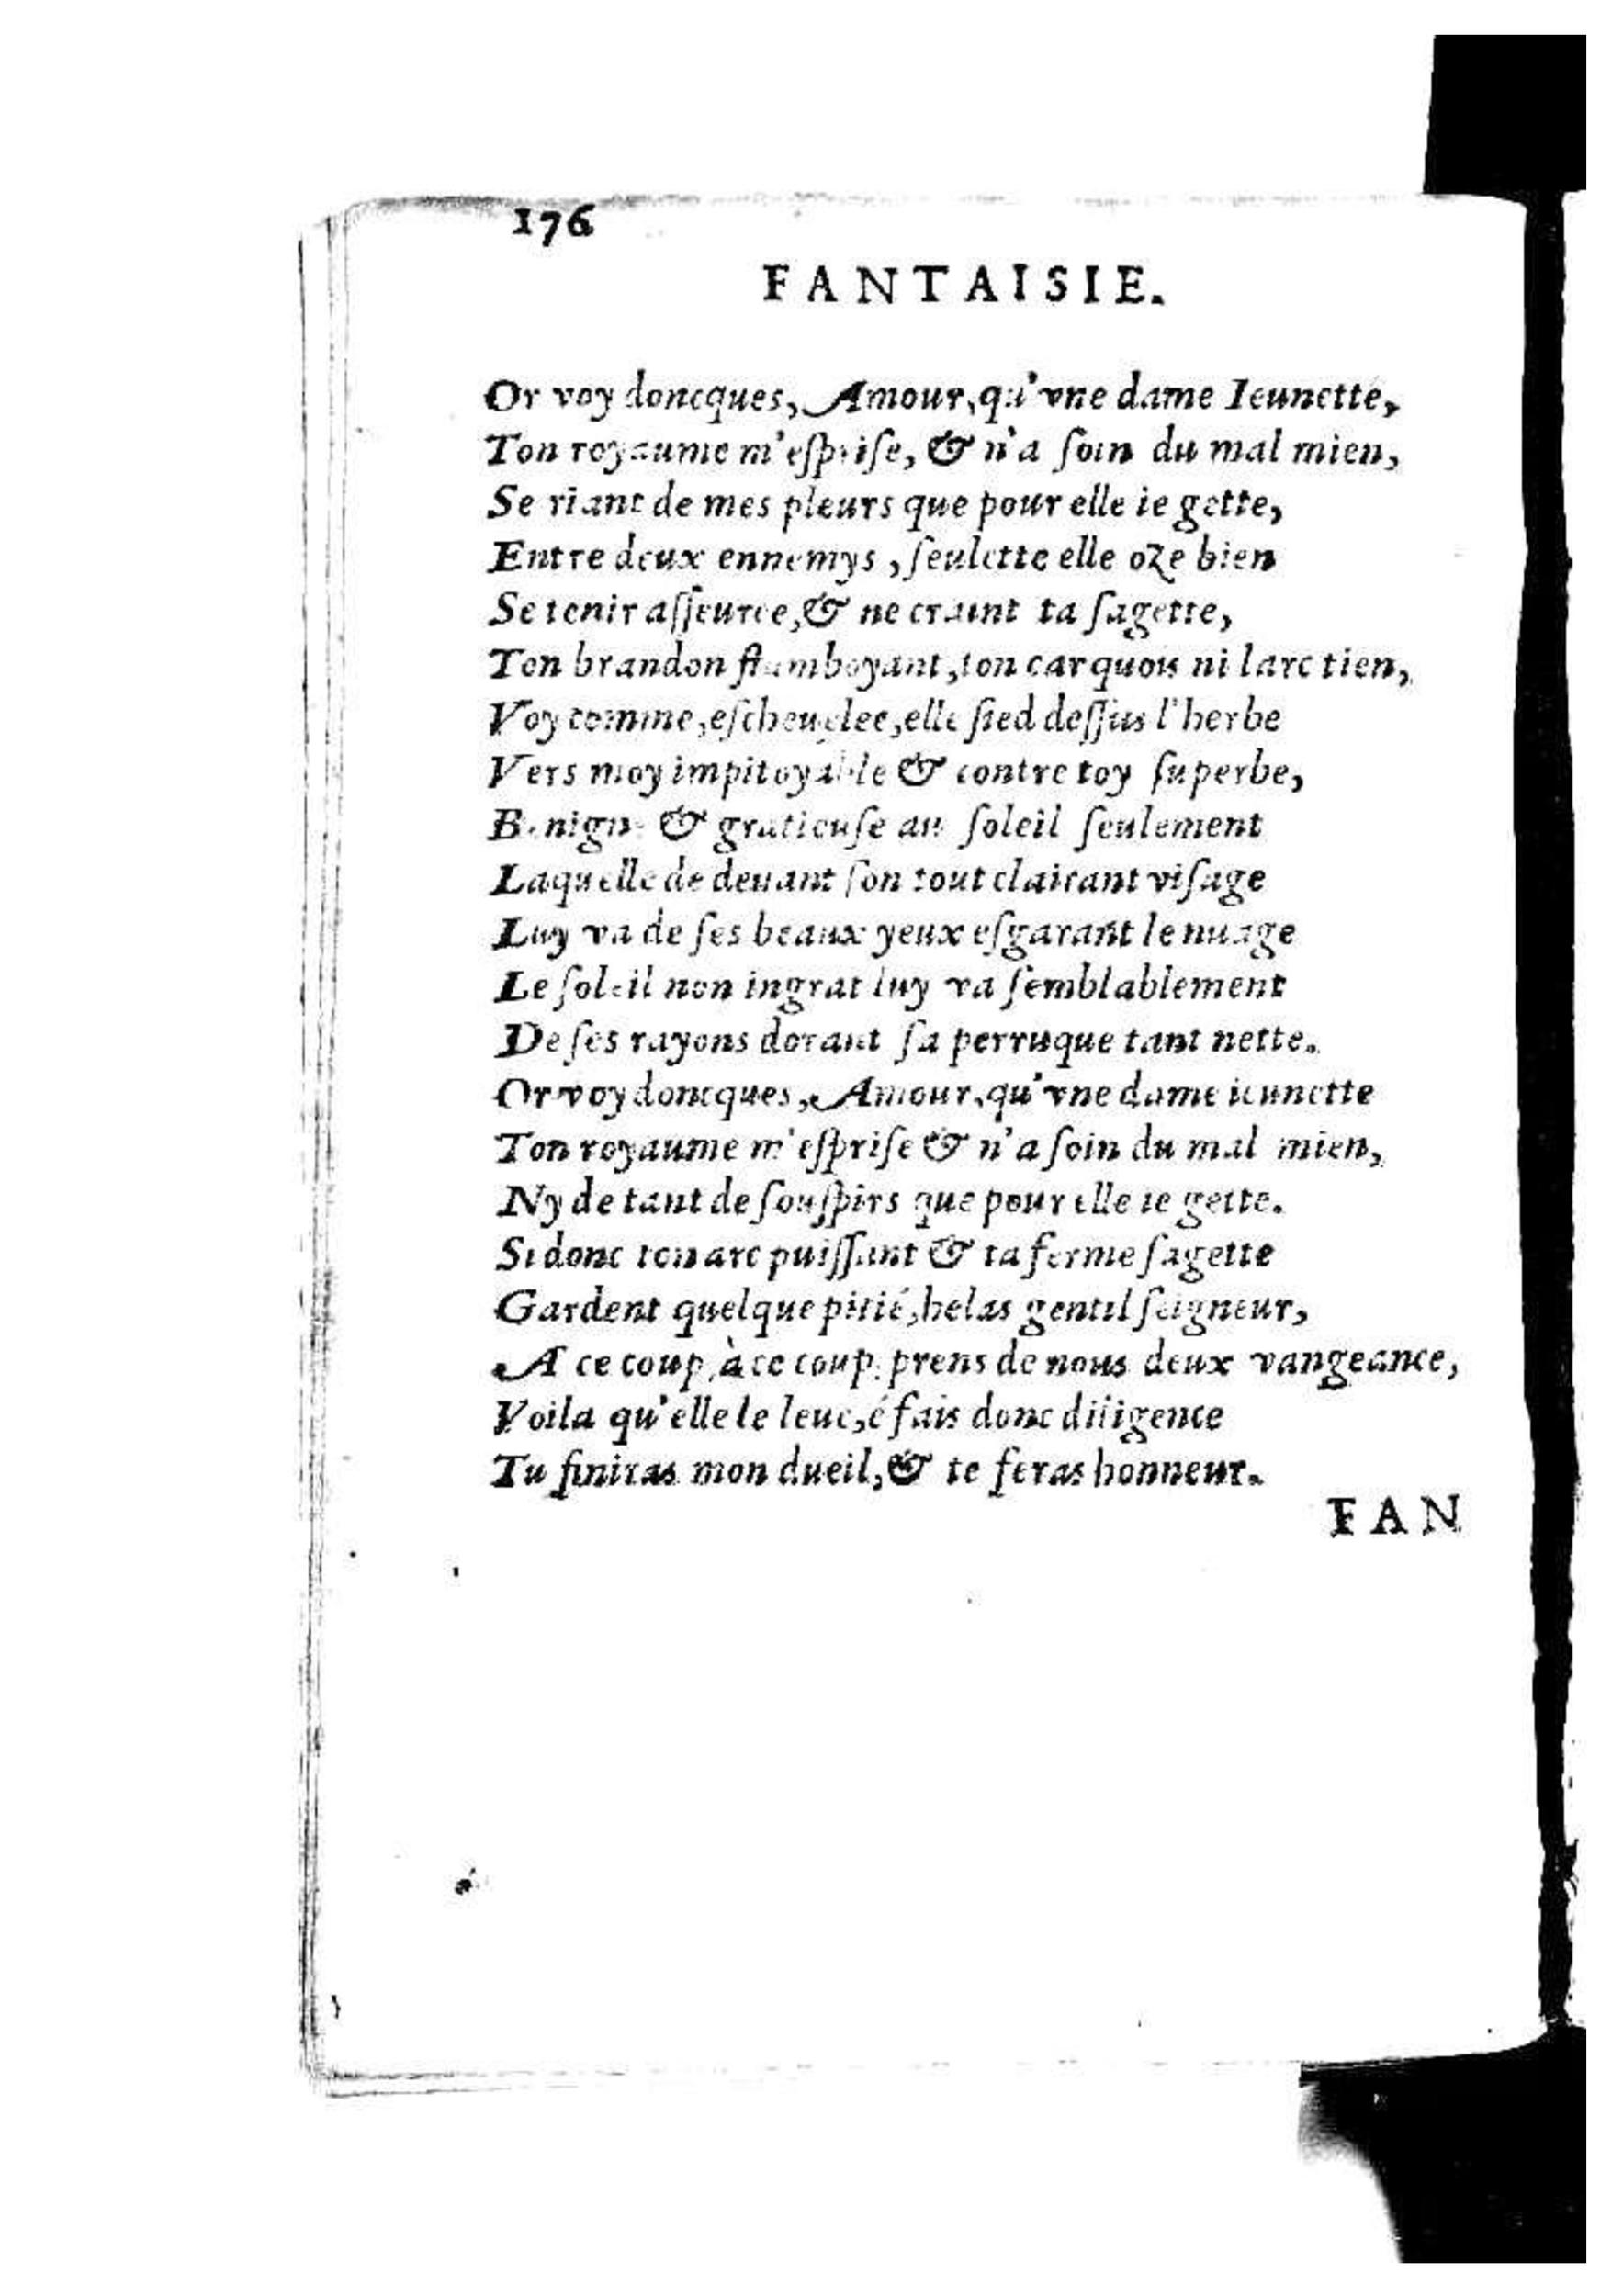 176
FANTAISIE.
Or voy doncques, Amour, qu'vne dame Ieunette,
Ton royaume m'eſpriſe, & n'a ſoin du mal mien,
Se riant de mes pleurs que pour elle ie gette,
Entre deux ennemys, ſeulette elle oze bien
Se tenir aſſeuree, & ne craint ta ſagette,
Ton brandon flamboyant, ton carquois ni larc tien,
Voy comme, eſcheuelee, elle ſied deſſus l'herbe
Vers moy impitoyable & contre toy ſuperbe,
Benigne & gratieuſe au ſoleil ſeulement
Laquelle de deuant ſon tout clairant viſage
Luy va de ſes beaux yeux eſgarant le nuage
Le ſoleil non ingrat luy va ſemblablement
De ſes rayons dorant ſa perruque tant nette.
Or voy doncques, Amour, qu'vne dame ieunette
Ton royaume m'eſpriſe & n'a ſoin du mal mien,
Ny de tant de ſouſpirs que pour elle ie gette.
Si donc ton arc puiſſant & ta ferme ſagette
Gardent quelque pitié, helas gentil ſeigneur,
A ce coup, à ce coup, prens de nous deux vangeance,
Voila qu'elle le leue, é fais donc diligence
Tu finiras mon dueil, & te feras honneur.
FAN